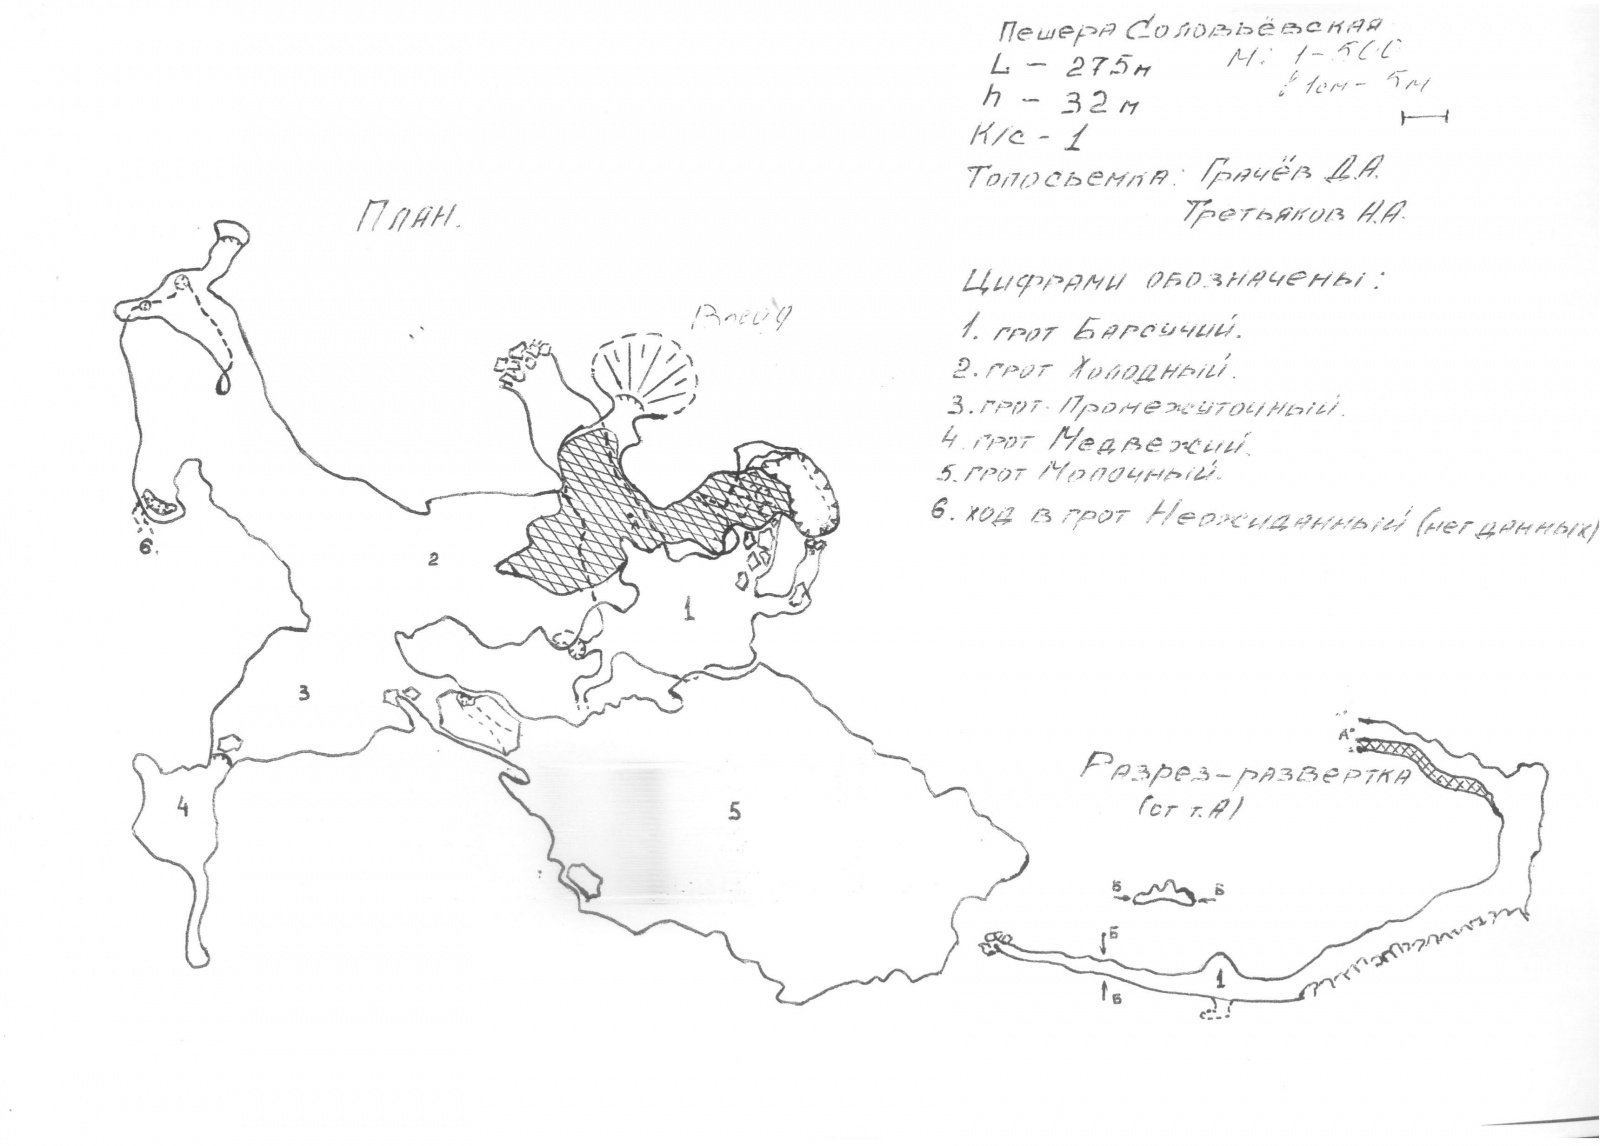 Пещера Соловьёвская
L - 275м М: 1-500
h - 32м в 1см - 5м
К/с - 1
Топосъемка: Грачёв Д.А.
Третьяков Н.А.
План.
Цифрами обозначены:
Вход
1. грот Барсучий.
2. грот Холодный.
3. грот Промежуточный.
4 грот Медвежий.
5. грот Молочный.
6. ход в грот Неожиданный (нет данных)
6.
2
1
3
4
5
А
Разрез-развертка
(от т. А)
Б Б
Б
1
Б